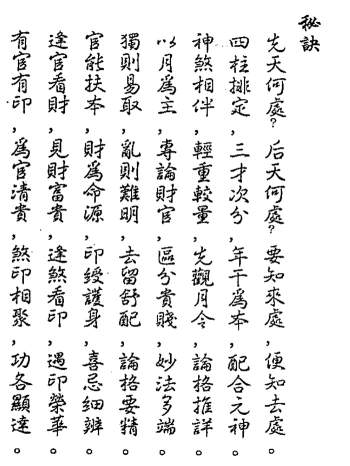 秘訣
先天何處?后天何處?要知來處,便知去處。
四柱排定,三才次分,年干爲本,配合元神。
神煞相伴,輕重較量,先觀月令,論格推詳。
以月爲主,專論財官,區分貴賤,妙法多端。
獨則易取,亂則難明,去留舒配,論格要精。
官能扶本,財爲命源,印綬護身,喜忌细辨。
逢官看財,見財富貴,逢煞看印,遇印榮華。
有官有印,爲官清貴,煞印相聚,功各顯達。